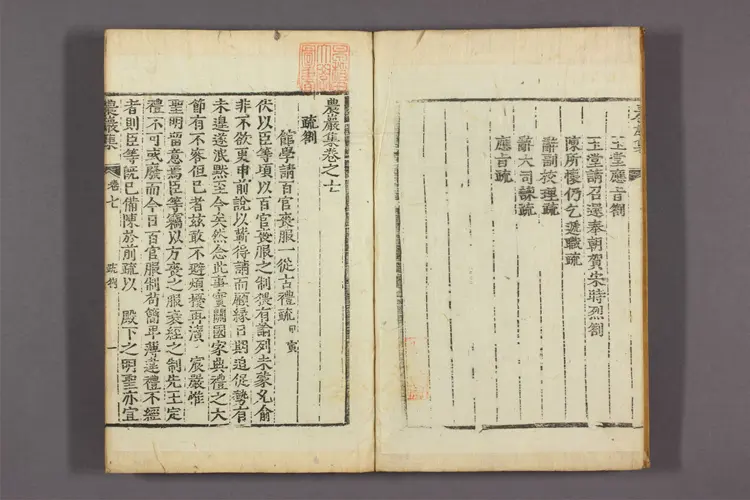 農巖集
玉堂應旨劄
玉堂請召還奉朝賀宋時烈劄
陳所懷仍乞遞職疏
辭副校理疏
辭大司諫疏
應旨疏
農巖集卷之七
疏劄
館學請百官喪服一從古禮疏 甲寅
伏以臣等頃以百官喪服之制猥有論列未蒙允俞
非不欲更申前說以蘄得請而顧緣日期迫促勢有
未遑遂泯默至今矣然念此事實關國家典禮之大
節有不容但已者玆敢不避煩擾再瀆 宸嚴惟
聖明留意焉臣等竊以方喪之服衰絰之制先王定
禮不可或廢而今日百官服制苟簡卑薄違禮不經
者則臣等旣已備陳於前疏以 殿下之明聖亦宜
農巖集 卷七 疏劄 一